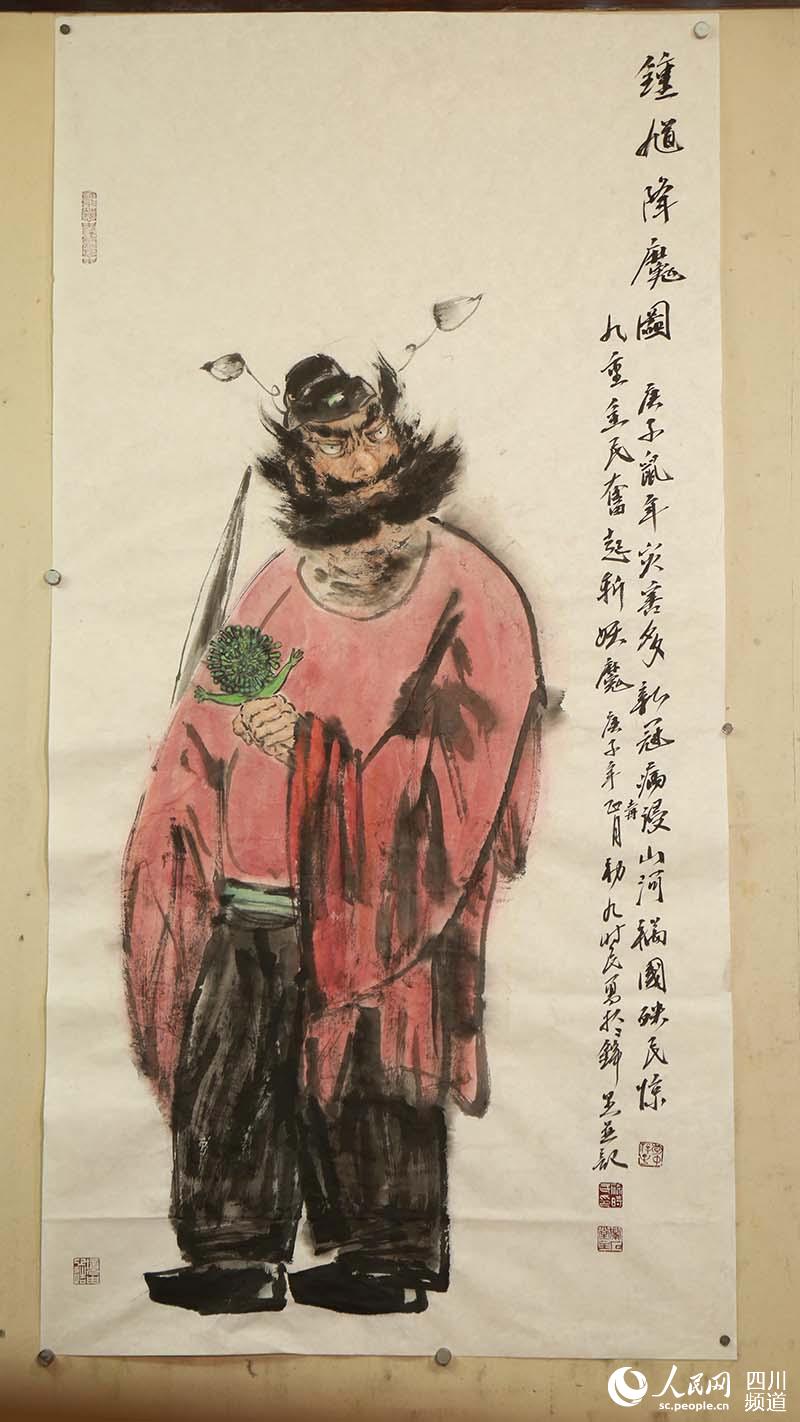 鍾馗降魔圖 庚子鼠年災害多新冠病毒侵山河禍國殃民惊
九重全民奮起斬妖魔 庚子年正月初九时民写於
人民网 四川频道
sc.people.cn